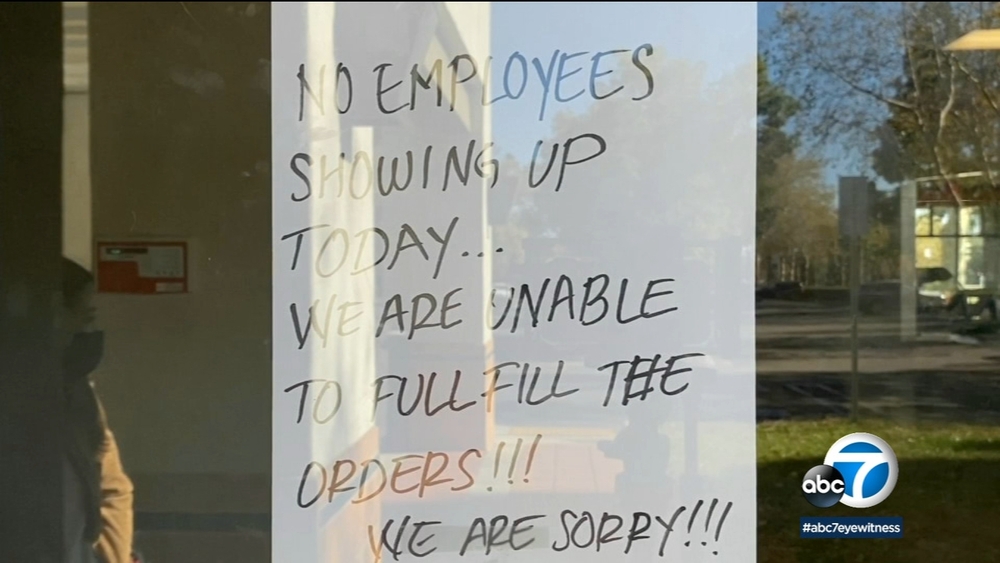 NO EMPLOYEES
SHOWING UP
TODAY...
WE ARE UNABLE
TO FULLFILL THE
ORDERS!!!
WE ARE SORRY!!!
abc7
#abc7eyewitness